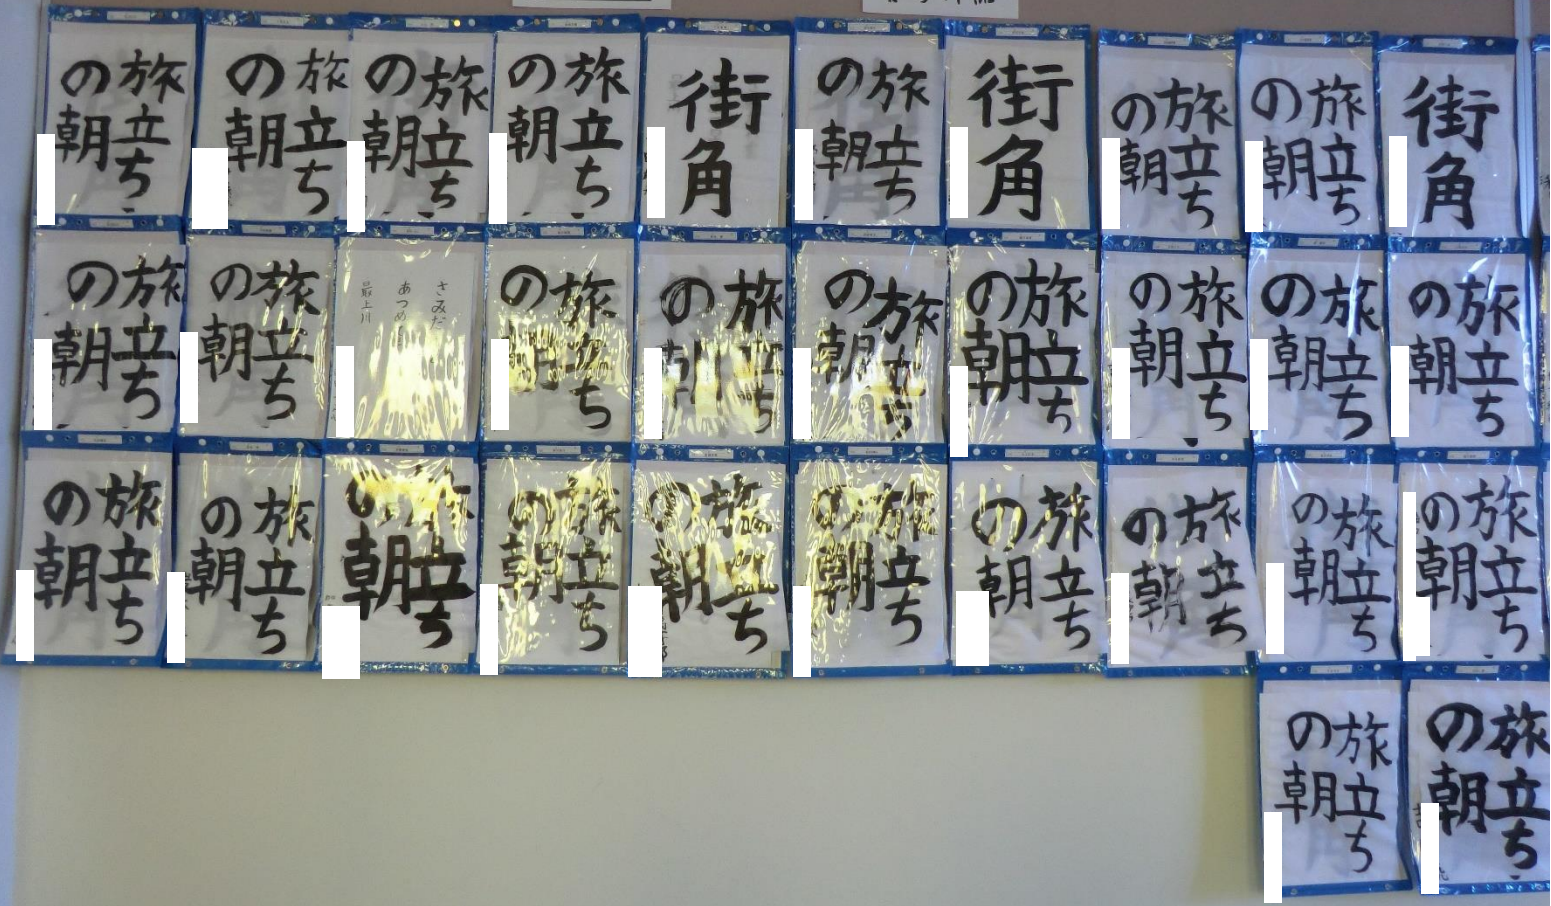 旅立ち
の朝
旅立ち
の朝
旅立ち
の朝
旅立ち
の朝
街角
旅立ち
の朝
街角
旅立ち
の朝
旅立ち
の朝
街角
旅立ち
の朝
旅立ち
の朝
さみだ
あつめ
最上川
旅立ち
の朝
旅立ち
の朝
旅立ち
の朝
旅立ち
の朝
旅立ち
の朝
旅立ち
の朝
旅立ち
の朝
旅立ち
の朝
旅立ち
の朝
旅立ち
の朝
旅立ち
の朝
旅立ち
の朝
旅立ち
の朝
旅立ち
の朝
旅立ち
の朝
旅立ち
の朝
旅立ち
の朝
旅立ち
の朝
旅立ち
の朝